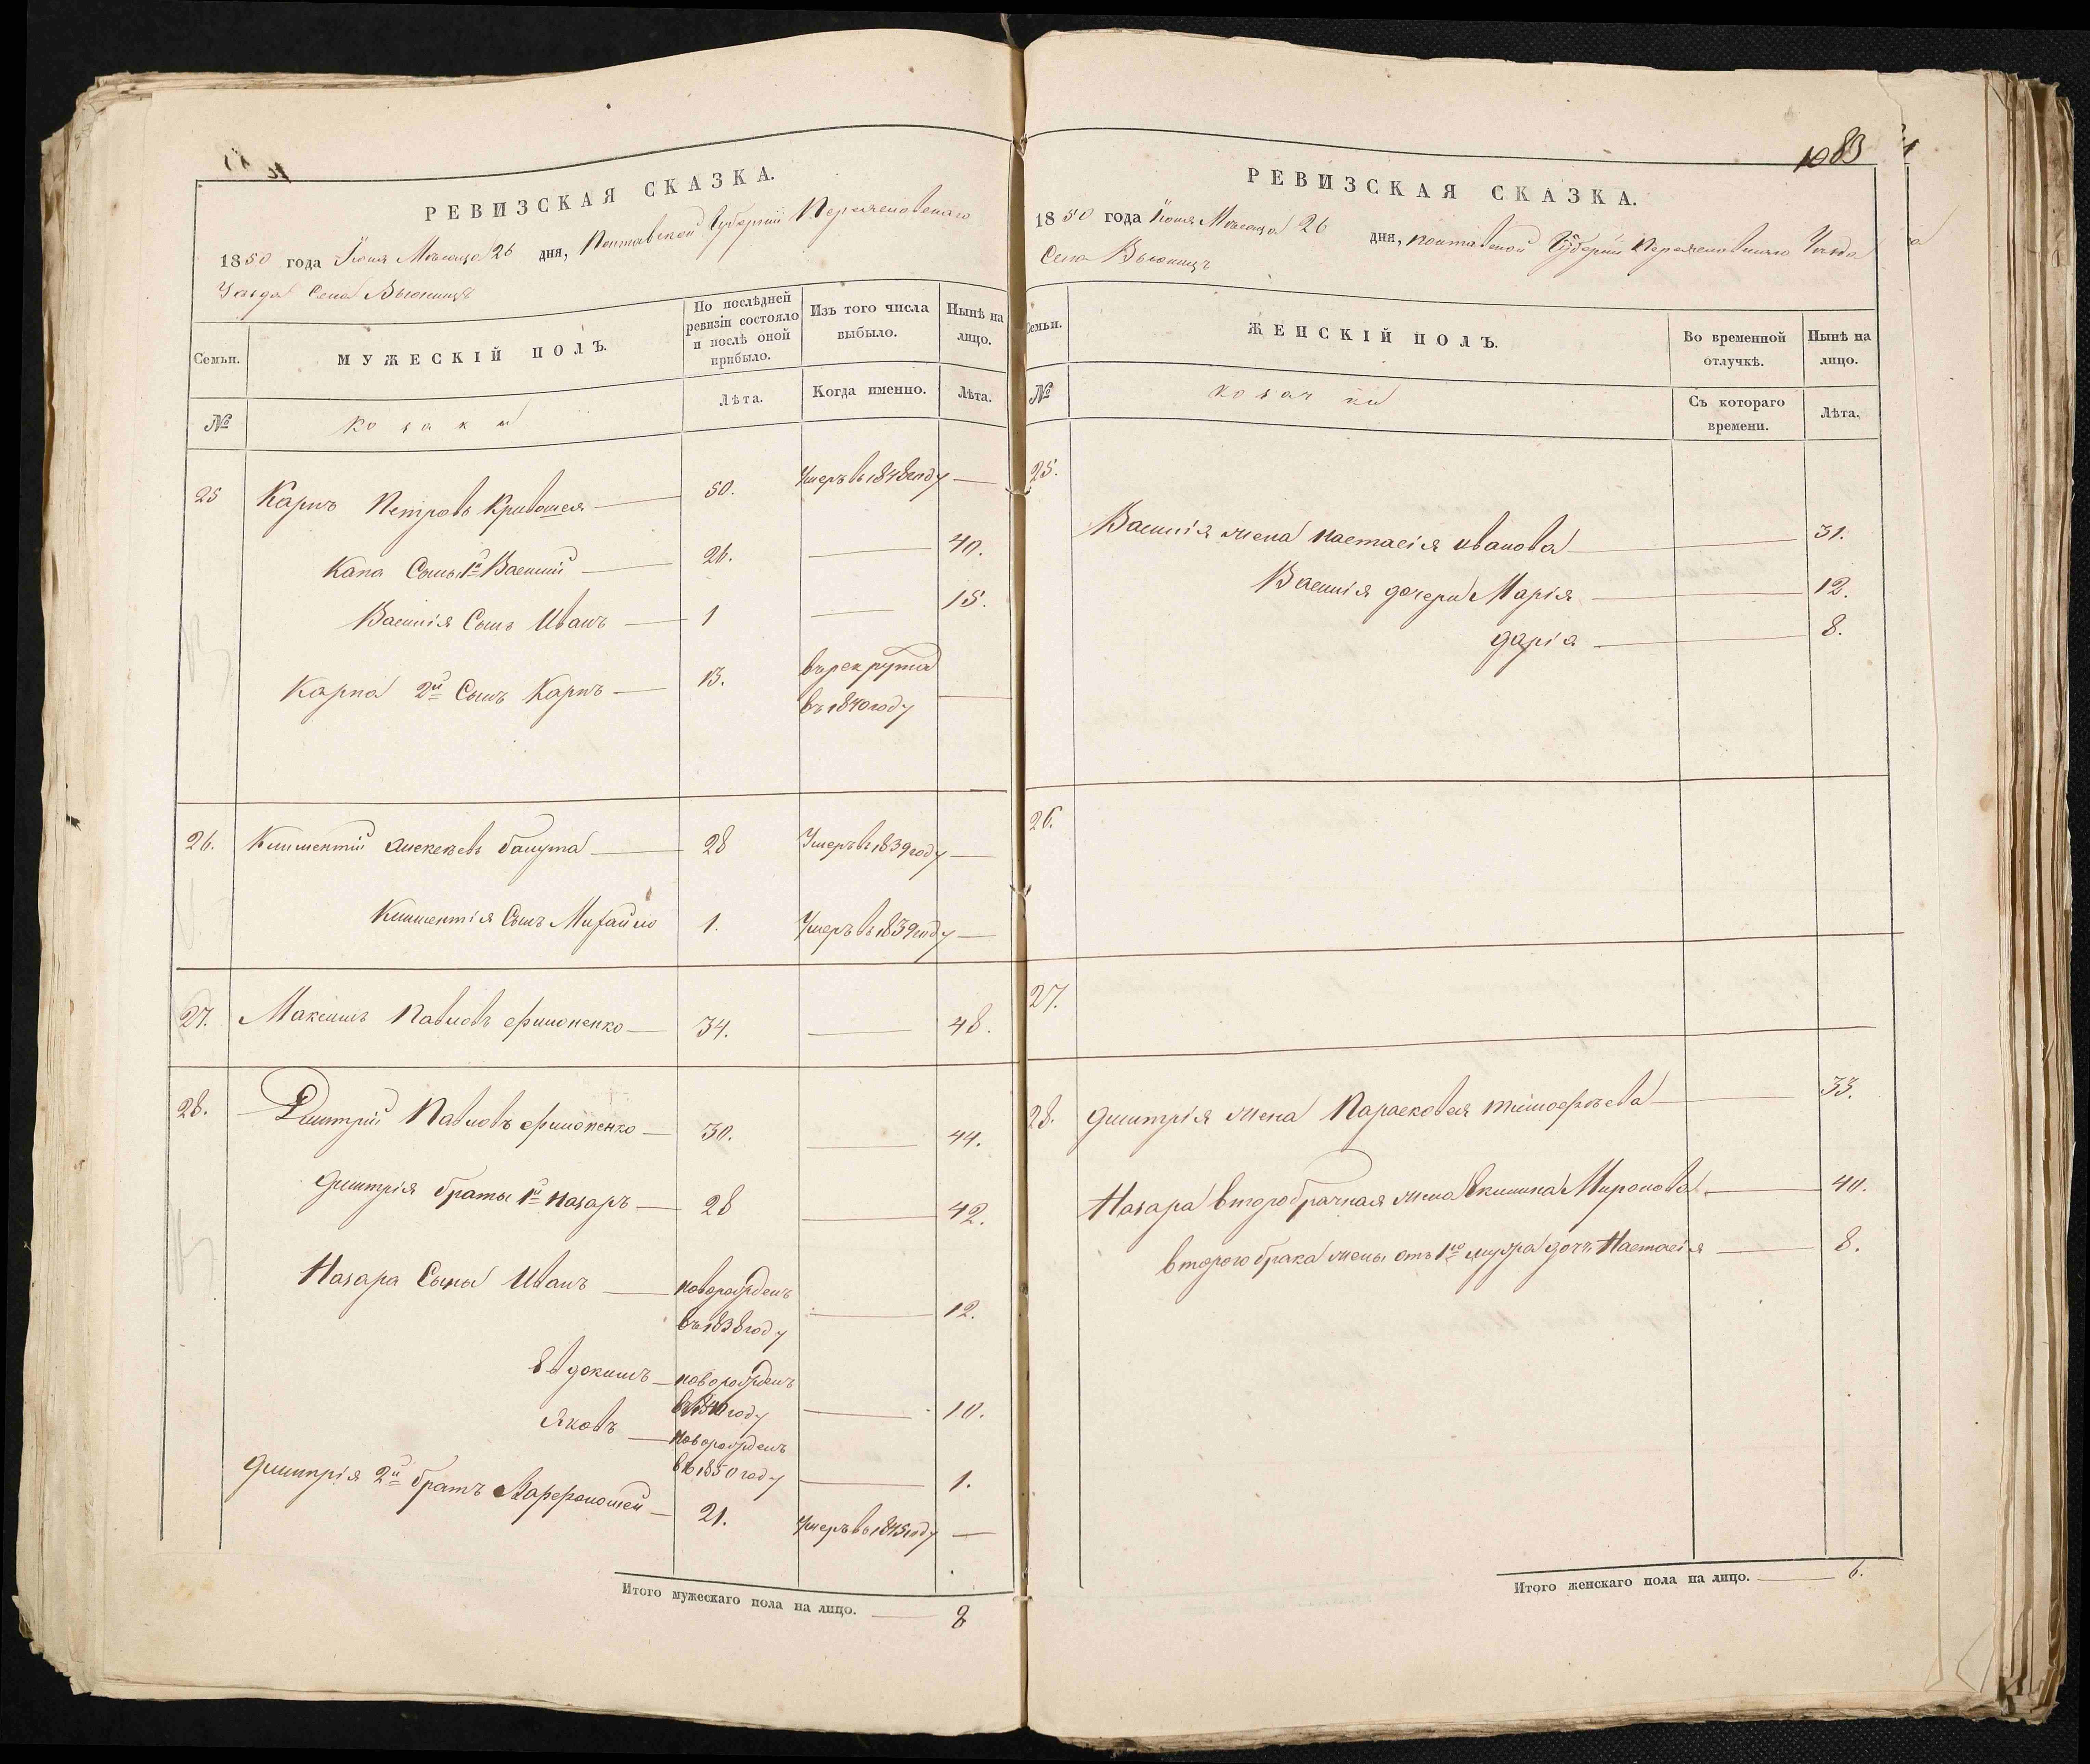 РЕВИЗСКАЯ СКАЗКА.
1850 года Іюня Мѣсяца 26 дня, Полтавской Губерніи Переяславскаго
Уѣзда Села Вьюнищъ
Семьи.
МУЖЕСКІЙ ПОЛЪ.
По послѣдней ревизіи состояло и послѣ оной прибыло.
Изъ того числа выбыло.
Нынѣ на лицо.
№
козаки
Лѣта.
Когда именно.
Лѣта.
25 Карпъ Петровъ Кривошея — 50. Умеръ въ 1848 году —
Сынъ 1й Василий — 26. — 40.
Василія Сынъ Иванъ — 1 — 15.
Карпа 2й Сынъ Карпъ — 13. въ рекрута
въ 1840 году —
26. Климентий Алексеевъ балута — 28 Умеръ въ 1839 году —
Климентія Сынъ Михайло 1. Умеръ въ 1839 году —
27. Максимъ Павловъ Филоненко — 34. — 48.
28. Дмитрий Павловъ Филоненко — 30. — 44.
Дмитрія братья 1й Назаръ — 28 — 42.
Назара Сыны Иванъ — новорожденъ
въ 1838 году — 12.
Евдокимъ — новорожденъ
въ 1840 году — 10.
Яковъ — новорожденъ
въ 1850 году — 1.
Дмитрія 2й братъ Варфоломей — 21. Умеръ въ 1845 году —
Итого мужескаго пола на лицо. — 8
1083
РЕВИЗСКАЯ СКАЗКА.
1850 года Іюня Мѣсяца 26 дня, полтавской Губерніи Переяславскаго Уѣзда
Села Вьюнищъ
Семьи.
ЖЕНСКІЙ ПОЛЪ.
Во временной отлучкѣ.
Нынѣ на лицо.
№
козачки
Съ котораго времени.
Лѣта.
25.
Василія жена настасія иванова — 31.
Василія дочери Марія — 12.
дарія — 8.
26.
27.
28. Дмитрія жена Парасковея тимофѣева — 33.
Назара второбрачная жена Миронова — 40.
второго брака жены отъ 1го мужа дочь Настасія — 8.
Итого женскаго пола на лицо. — 6.